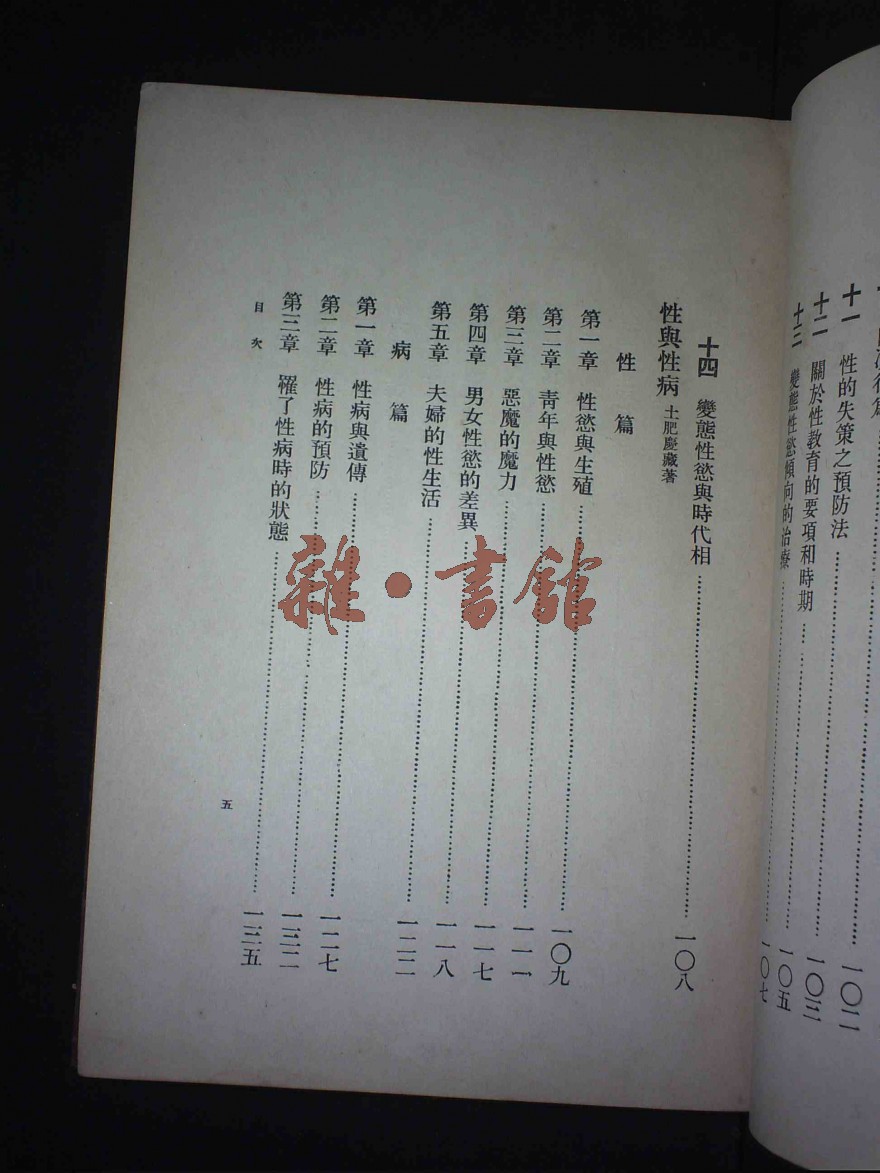 一〇二
十一 性的失策之預防法 一〇三
十二 關於性教育的要項和時期 一〇五
十三 變態性慾傾向的治療 一〇七
十四 變態性慾與時代相 一〇八
性與性病 土肥慶藏著
性篇
第一章 性慾與生殖 一〇九
第二章 青年與性慾 一一一
第三章 惡魔的魔力 一一七
第四章 男女性慾的差異 一一八
第五章 夫婦的性生活 一二二
病篇
第一章 性病與遺傳 一二七
第二章 性病的預防 一三二
第三章 罹了性病時的狀態 一三五
目次
五
雜·書館